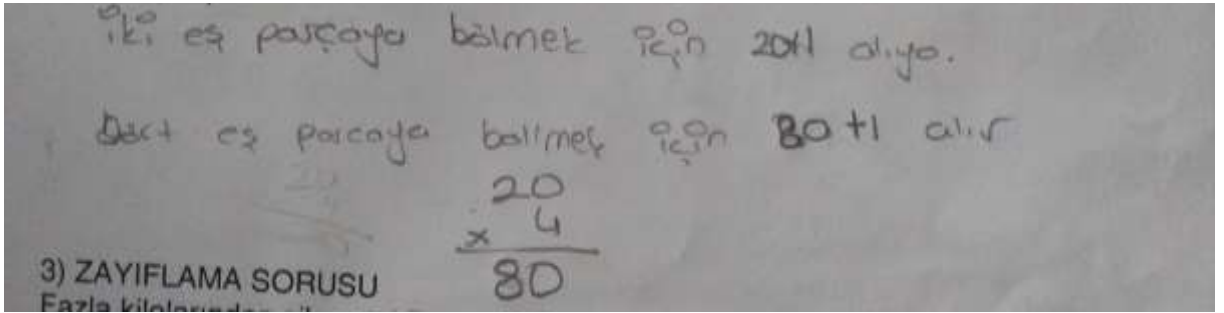 iki eş parçaya bölmek için 20tl alıyo.
Dört eş parcaya bölmek için 80 tl alır
20
x 4
80
3) ZAYIFLAMA SORUSU
Fazla kilolarından